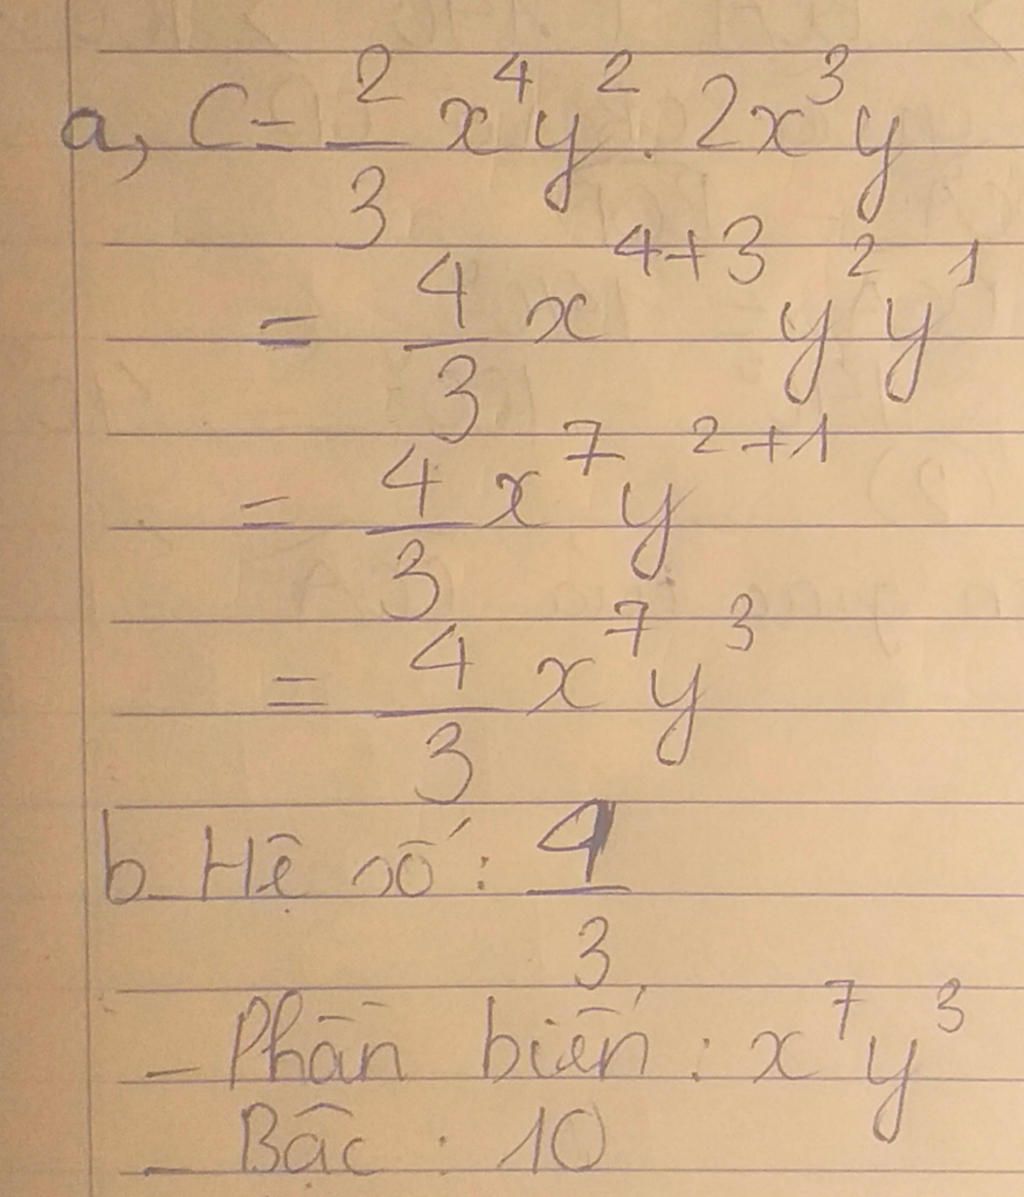 a, C = 2/3 x⁴y² . 2x³y
= 4/3 x⁴⁺³ y² y¹
= 4/3 x⁷ y²⁺¹
= 4/3 x⁷ y³
b. Hệ số : 4/3
- Phần biến : x⁷ y³
- Bâc : 10